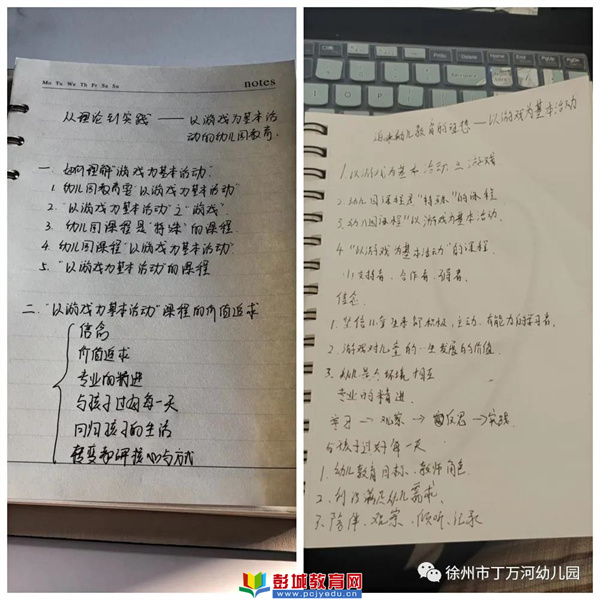 Mo Tu We Th Fr Sa Su
notes
从理论到实践——以游戏为基本活
动的幼儿园教育.
一. 如何理解"游戏为基本活动"
1. 幼儿园教育要"以游戏为基本活动"
2. "以游戏为基本活动"之"游戏"
3. 幼儿园课程是"特殊"的课程
4. 幼儿园课程"以游戏为基本活动"
5. "以游戏为基本活动"的课程
二. "以游戏为基本活动"课程的价值追求
信念
价值追求
专业的精进
与孩子过好每一天
回归孩子的生活
转变教研核心与方式
幼儿教育的理想——以游戏为基本活动
1. 以游戏为基本活动之游戏
2. 幼儿园课程是"特殊"的课程
3. 幼儿园课程"以游戏为基本活动.
4. "以游戏为基本活动"的课程.
小支持者、合作者、引导者.
信念.
1. 坚信儿童生来都积极、主动、有能力的学习者,
2. 游戏对儿童的一生发展的价值.
3. 幼儿与环境相互
专业的精进.
学习→观察→反思→实践
与孩子过好每一天
1. 幼儿教育目标、教师角色.
2. 幼儿需求.
3. 陪伴、观察、倾听、记录
彭城教育网
www.pcjyedu.cn
徐州市丁万河幼儿园